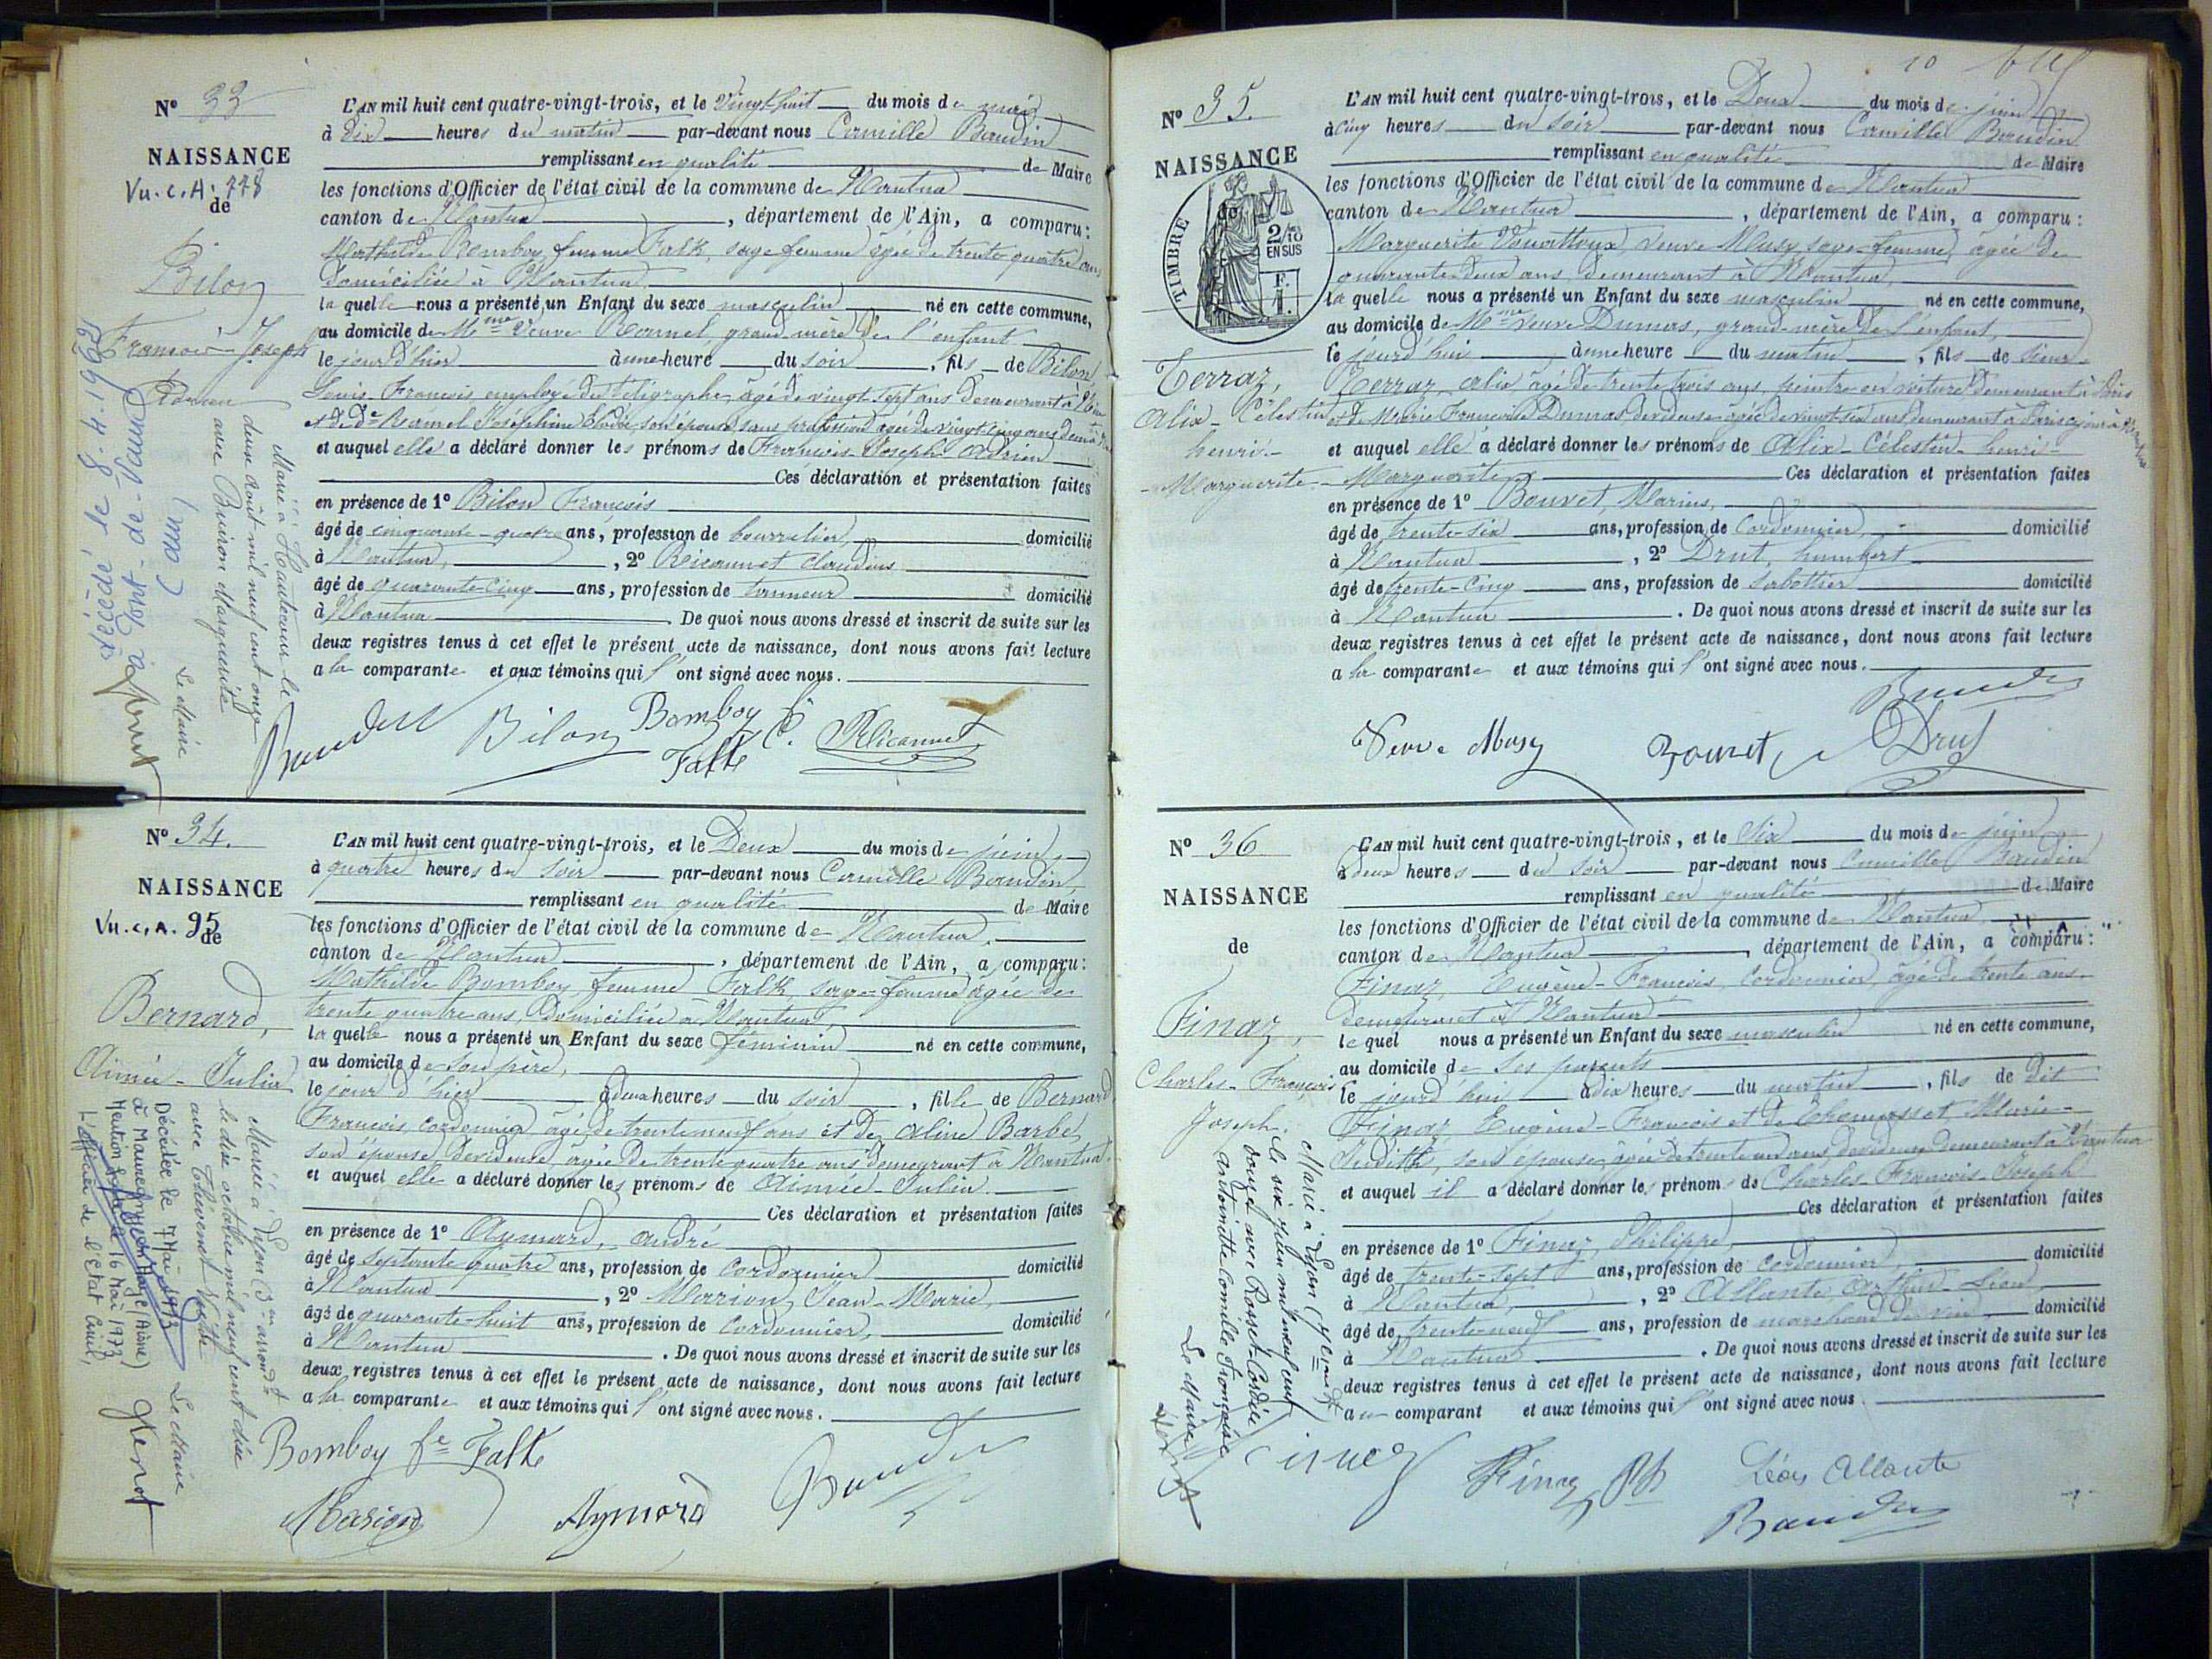 N° 33
NAISSANCE
Vu. c. A. 778
de
Bilon
François-Joseph
Adrien
Marié à Hauteville le
deux Août mil neuf cent onze
avec Buisson Marguerite
Le Maire
Décédé le 8.4.1962
à Pont-de-Vaux
(Ain)
L'AN mil huit cent quatre-vingt-trois, et le Vingt-huit du mois de mai
à dix heures du matin par-devant nous Camille Baudin
remplissant en qualité de Maire
les fonctions d'Officier de l'état civil de la commune de Nantua
canton de Nantua, département de l'Ain, a comparu:
Mathilde Bomboy femme Falk, sage femme âgée de trente quatre ans
domiciliée à Nantua
la quelle nous a présenté un Enfant du sexe masculin né en cette commune,
au domicile de Mme Veuve grand'mère de l'enfant
le jour d'hier à une heure du soir, fils de Bilon
Louis-François employé du télégraphe, âgé de vingt sept ans demeurant à
et de De Joséphine Elodie, son épouse, sans profession âgée de vingt-cinq ans
et auquel elle a déclaré donner les prénoms de François-Joseph-Adrien
Ces déclaration et présentation faites
en présence de 1° Bilon François
âgé de cinquante-quatre ans, profession de bourrelier, domicilié
à Nantua, 2° Claudius
âgé de quarante-cinq ans, profession de tanneur domicilié
à Nantua. De quoi nous avons dressé et inscrit de suite sur les
deux registres tenus à cet effet le présent acte de naissance, dont nous avons fait lecture
a la comparante et aux témoins qui l'ont signé avec nous.
Baudin Bilon Bomboy fe
Falk
N° 34.
NAISSANCE
Vu. c. A. 95
de
Bernard,
Aimée-Julia
Mariée à Lyon (3e arrondt)
le dix octobre mil neuf cent dix
avec Thévenet
Le Maire
Décédée le 7 Mai 1973
à
Mention 16 Mai 1973
L'Officier de l'Etat Civil,
L'AN mil huit cent quatre-vingt-trois, et le Deux du mois de juin
à quatre heures du soir par-devant nous Camille Baudin,
remplissant en qualité de Maire
les fonctions d'Officier de l'état civil de la commune de Nantua,
canton de Nantua, département de l'Ain, a comparu:
Mathilde Bomboy femme Falk, sage-femme âgée de
trente quatre ans, domiciliée à Nantua,
la quelle nous a présenté un Enfant du sexe féminin né en cette commune,
au domicile de son père,
le jour d'hier à deux heures du soir, fille de Bernard
François, cordonnier âgé de trente neuf ans et de Aline Barbe
son épouse, dévideuse, âgée de trente quatre ans demeurant à Nantua.
et auquel elle a déclaré donner les prénoms de Aimée-Julia.
Ces déclaration et présentation faites
en présence de 1° Aymard, André
âgé de septante quatre ans, profession de cordonnier domicilié
à Nantua, 2° Marion, Jean-Marie,
âgé de quarante-huit ans, profession de cordonnier, domicilié
à Nantua. De quoi nous avons dressé et inscrit de suite sur les
deux registres tenus à cet effet le présent acte de naissance, dont nous avons fait lecture
a la comparante et aux témoins qui l'ont signé avec nous.
Bomboy fe Falk
Marion Aymard Baudin
10
N° 35.
NAISSANCE
de
TIMBRE
2/10
EN SUS
F.
1.
Terraz,
Alix-Célestin
henri-
Marguerite
L'AN mil huit cent quatre-vingt-trois, et le Deux du mois de juin
à cinq heures du soir par-devant nous Camille Baudin
remplissant en qualité de Maire
les fonctions d'Officier de l'état civil de la commune de Nantua
canton de Nantua, département de l'Ain, a comparu:
Marguerite veuve Musy, sage-femme, âgée de
quarante deux ans, demeurant à Nantua,
la quelle nous a présenté un Enfant du sexe masculin né en cette commune,
au domicile de Mme Veuve Dumas, grand-mère de l'enfant,
le jourd'hui à une heure du matin, fils de sieur
Terraz, Alix âgé de trente trois ans, peintre en voiture demeurant à Paris
et de Marie Françoise Dumas dévideuse âgée de vingt-six ans, demeurant à Paris
et auquel elle a déclaré donner les prénoms de Alix-Célestin-henri-
Marguerite Ces déclaration et présentation faites
en présence de 1° Bouvet, Marius,
âgé de trente-six ans, profession de cordonnier, domicilié
à Nantua, 2° Drut, humbert
âgé de trente-cinq ans, profession de sabottier domicilié
à Nantua. De quoi nous avons dressé et inscrit de suite sur les
deux registres tenus à cet effet le présent acte de naissance, dont nous avons fait lecture
a la comparante et aux témoins qui l'ont signé avec nous.
Baudin
Veuve Musy Bouvet Drut
N° 36
NAISSANCE
de
Finaz,
Charles-François
Joseph.
Marié à Lyon
le six juin mil neuf cent
douze avec Rosset-Cordelié
Antoinette Camille Françoise
Le Maire
L'AN mil huit cent quatre-vingt-trois, et le Six du mois de juin
à deux heures du soir par-devant nous Camille Baudin
remplissant en qualité de Maire
les fonctions d'Officier de l'état civil de la commune de Nantua,
canton de Nantua, département de l'Ain, a comparu:
Finaz, Eugène-François, cordonnier, âgé de trente ans
demeurant à Nantua
le quel nous a présenté un Enfant du sexe masculin né en cette commune,
au domicile de ses parents
le jourd'hui à dix heures du matin, fils de dit
Finaz, Eugène-François et de Thomasset Marie-
Judith, son épouse, âgée de trente un ans, dévideuse demeurant à Nantua
et auquel il a déclaré donner les prénoms de Charles-François-Joseph
Ces déclaration et présentation faites
en présence de 1° Finaz, Philippe,
âgé de trente-sept ans, profession de cordonnier, domicilié
à Nantua, 2° Allante, Arthur-Léon
âgé de trente-neuf ans, profession de marchand de vin, domicilié
à Nantua. De quoi nous avons dressé et inscrit de suite sur les
deux registres tenus à cet effet le présent acte de naissance, dont nous avons fait lecture
au comparant et aux témoins qui l'ont signé avec nous.
Finaz Finaz Ph Léon Allante
Baudin